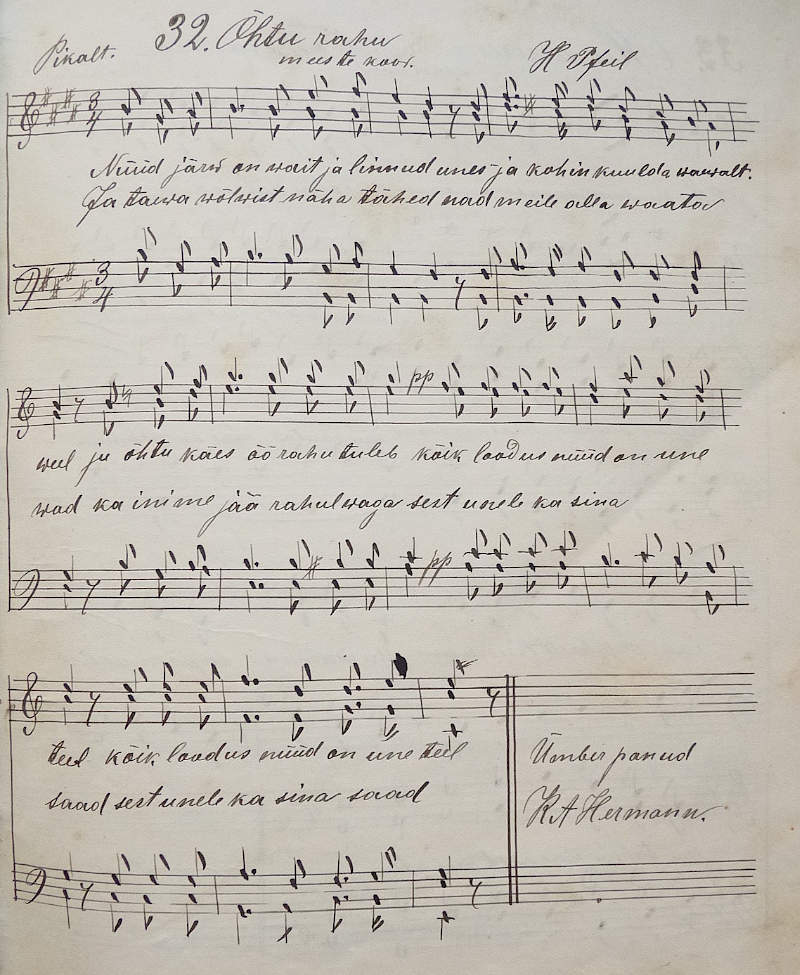 32. Õhtu rahu
Pikalt.
meeste koor.
H Pfeil
Nüüd järw on wait ja linnud unes ja kohin kuulda wawalt.
Ja taewa wõlwist näha tähed nad meile alla waata
pp
weel ju õhtu käes öö rahu tuleb kõik loodus nüüd on une
wad ka inime jää rahul waga sest unele ka sina
pp
teel kõik loodus nüüd on une teel
saad sest unele ka sina saad
Ümber panud
K A Hermann.